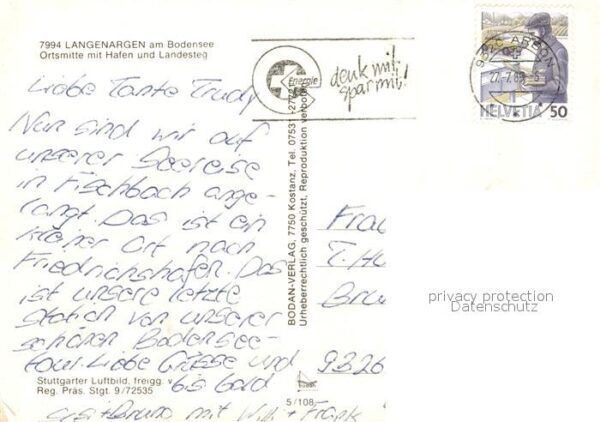 7994 LANGENARGEN am Bodensee
Ortsmitte mit Hafen und Landesteg
Liebe Tante Trudy
Nun sind wir auf
unserer Seereise
in Fischbach ange-
langt. Das ist ein
kleiner Ort nach
Friedrichshafen. Das
ist unsere letzte
Station von unserer
schönen Bodensee-
tour. Liebe Grüsse und
bis bald
Sisi + Bruno mit Willi + Frank
Stuttgarter Luftbild, freigg.
Reg. Präs. Stgt. 9/72535
BODAN-VERLAG, 7750 Kostanz, Tel. 07531
Urheberrechtlich geschützt, Reproduktion verboten
5/108
Energie
denk mit,
spar mit!
ARBON
HELVETIA 50
Frau
T. Hu
Bru
9326
privacy protection
Datenschutz